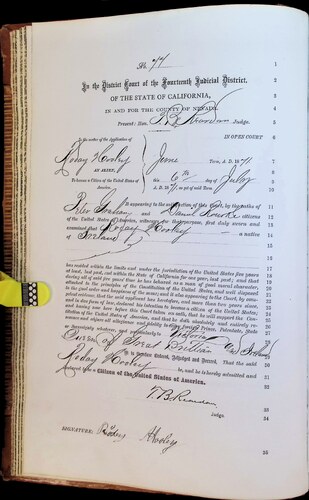 No. 74
In the District Court of the Fourteenth Judicial District,
OF THE STATE OF CALIFORNIA,
IN AND FOR THE COUNTY OF NEVADA.
Present: Hon. T B Reardan Judge.
In the matter of the Application of
IN OPEN COURT
June Term, A. D. 1871
AN ALIEN,
this 6th day of July
To become a Citizen of the United States of
America.
A. D. 1871, as yet of said Term.
It appearing to the satisfaction of this Court, by the oaths of
and Daniel Rourke citizens
of the United States of America, witnesses for that purpose, first duly sworn and
examined that a native
of Ireland
has resided within the limits and under the jurisdiction of the United States five years
at least, last past, and within the State of California for one year, last past; and that
during all of said five years' time he has behaved as a man of good moral character,
attached to the principles of the Constitution of the United States, and well disposed
to the good order and happiness of the same; and it also appearing to the Court, by competent
evidence, that the said applicant has heretofore, and more than two years since,
and in due form of law, declared his intention to become a citizen of the United States;
and having now here before this Court taken an oath, that he will support the Constitution
of the United States of America, and that he doth absolutely and entirely renounce
and abjure all allegiance and fidelity to every foreign Prince, Potentate, State
or Sovereignty whatever, and particularly to Victoria
Queen of Great Brittian and Ireland
It is therefore Ordered, Adjudged and Decreed, That the said
be, and he is hereby admitted and
declared to be a Citizen of the United States of America.
T. B. Reardan
Judge.
SIGNATURE: